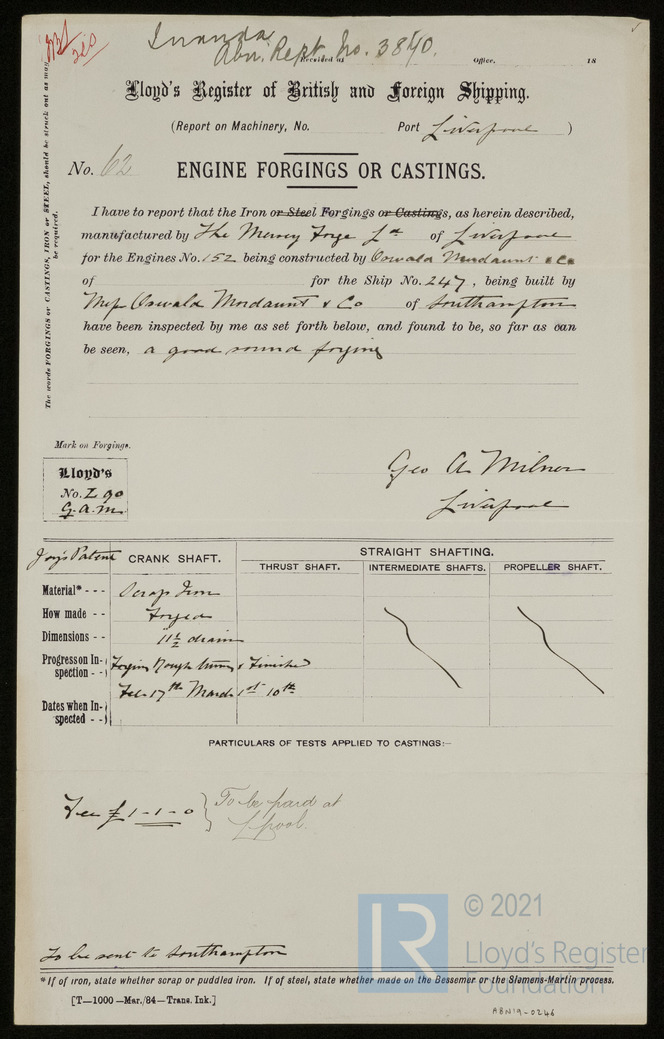 Inanda
Abn. Rept. No. 3840.
Received at Office. 18
Lloyd's Register of British and Foreign Shipping.
(Report on Machinery, No. Port Liverpool )
No. 62 ENGINE FORGINGS OR CASTINGS.
I have to report that the Iron or Steel Forgings or Castings, as herein described,
manufactured by The Mersey Forge Ld of Liverpool
for the Engines No. 152 being constructed by Oswald Mordaunt & Co
of for the Ship No. 247, being built by
Mess Oswald Mordaunt & Co of Southampton
have been inspected by me as set forth below, and found to be, so far as can
be seen, a good sound forging
The words FORGINGS or CASTINGS, IRON or STEEL, should be struck out as may
be required.
Mark on Forgings.
Lloyd's
No. L 90
G.A.M.
Geo A. Milner
Liverpool
Joy's Patent CRANK SHAFT. STRAIGHT SHAFTING.
THRUST SHAFT. INTERMEDIATE SHAFTS. PROPELLER SHAFT.
Material* - - - Scrap Iron
How made - - Forged
Dimensions - - 11 1/2 diam
Progress on In-
spection - - Forging Rough turned & Finished
Feb 17th March 1st 10th
Dates when In-
spected - -
PARTICULARS OF TESTS APPLIED TO CASTINGS:—
Fee £1-1-0 } To be paid at
L'pool.
To be sent to Southampton
*If of iron, state whether scrap or puddled iron. If of steel, state whether made on the Bessemer or the Siemens-Martin process.
[T—1000—Mar./84—Trans. Ink.]
ABN19-0246
LR
© 2021
Lloyd's Register
Foundation